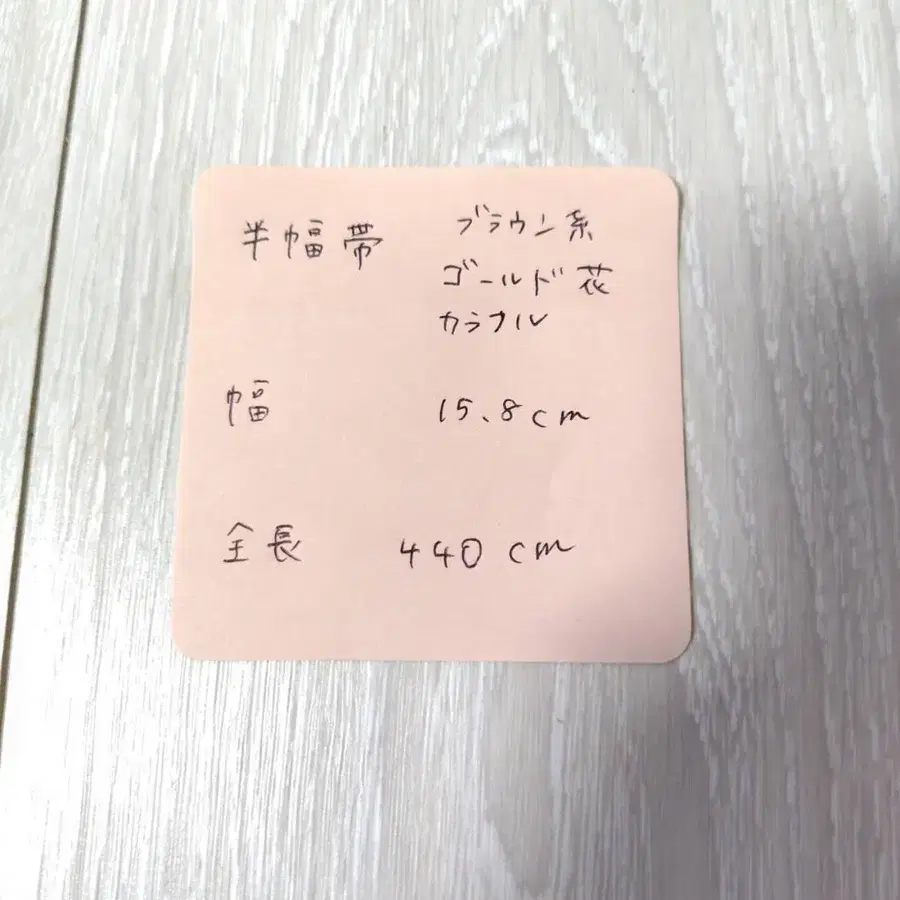 半幅帯 ブラウン系
ゴールド花
カラフル
幅 15.8cm
全長 440cm